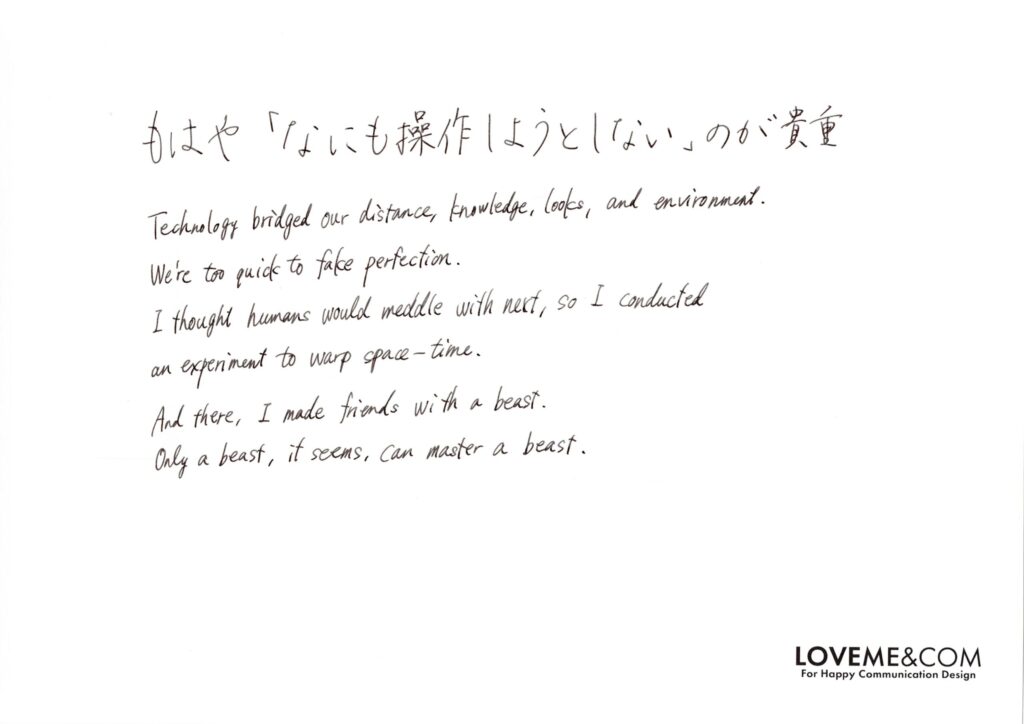 もはや「なにも操作しようとしない」のが貴重
Technology bridged our distance, knowledge, looks, and environment.
We're too quick to fake perfection.
I thought humans would meddle with next, so I conducted
an experiment to warp space-time.
And there, I made friends with a beast.
Only a beast, it seems, can master a beast.
LOVEME&COM
For Happy Communication Design